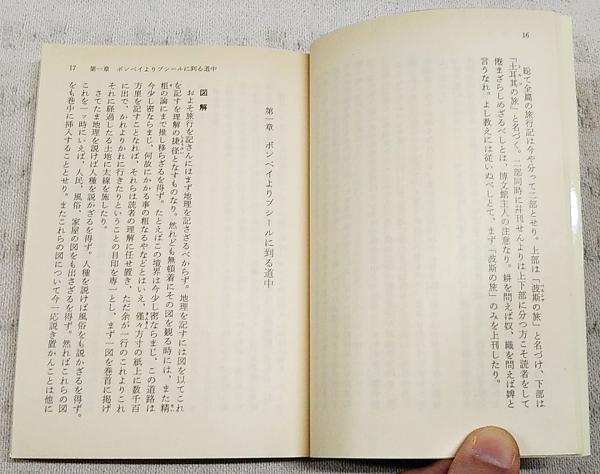 16
聡て全篇の旅行記は今や分つて二部とせり。上部は「波斯の旅」と名づけ、下部は
「土耳其の旅」と名づく。二部同時に幷刊せんよりは上下部に分つ方こそ読者をして
倦まざらしめざるべしとは、博文館主人の注意なり。耕を問えば奴、織を問えば婢と
言うなれ。よし教えには従いぬべしとて、まず「波斯の旅」のみを上刊したり。
17 第一章 ボンベイよりブシールに到る道中
第一章 ボンベイよりブシールに到る道中
図解
およそ旅行を記さんにはまず地理を記さざるべからず。地理を記すには図を以てこれ
を記すを理解の捷径となすものなり。然れども無頓着にその図を観る時には、また精
粗の論にまで推し移らざるを得ず。たとえばこの境界は今少し密ならまじ、この道路は
今少し密ならまじ、何故にかかる事の粗なるやなどとはいえ、僅々方寸の紙上に数千百
方里を記すことなれば、それらは読者の理解に任せ置き、ただ余が一行のこれよりこれ
に出で、かれよりかれに行きたりということの目印を専一とし、まず一図を巻首に掲げ
それに経過したる土地に太線を施したり。
さてたまた地理を説けば人種を説かざるを得ず。人種を説けば風俗をも説かざるを得ず。
これを一ヶ時にいえば、人民、風俗、家屋の図をも出さざるを得ず。然ればこれらの図
をも巻中に挿入することとせり。またこれらの図について今一応説き置かんことは他に